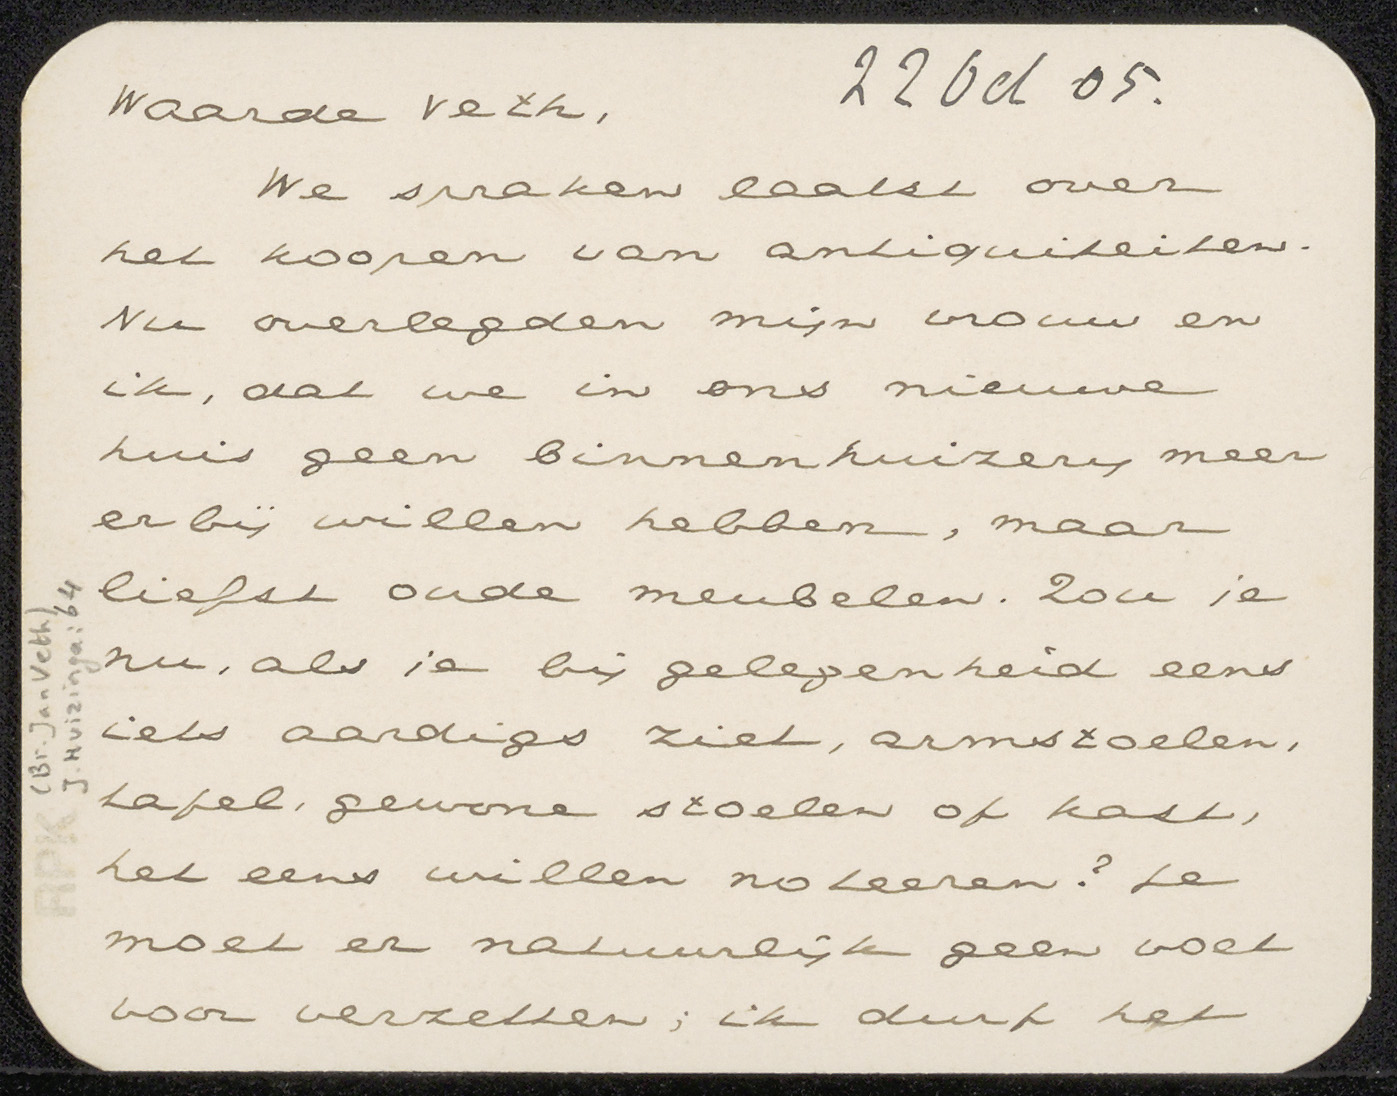 22 Oct 05.
Waarde Veth,
We spraken laatst over
het koopen van antiquiteiten.
Nu overlegden mijn vrouw en
ik, dat we in ons nieuwe
huis geen Binnenhuizerij meer
erbij willen hebben, maar
liefst oude meubelen. Zou je
nu, als je bij gelegenheid eens
iets aardigs ziet, armstoelen,
tafel, gewone stoelen of kast,
het eens willen noteeren? Je
moet er natuurlijk geen voet
voor verzetten; ik durf het
(Br. Jan Veth)
J. Huizinga: 64
RPK